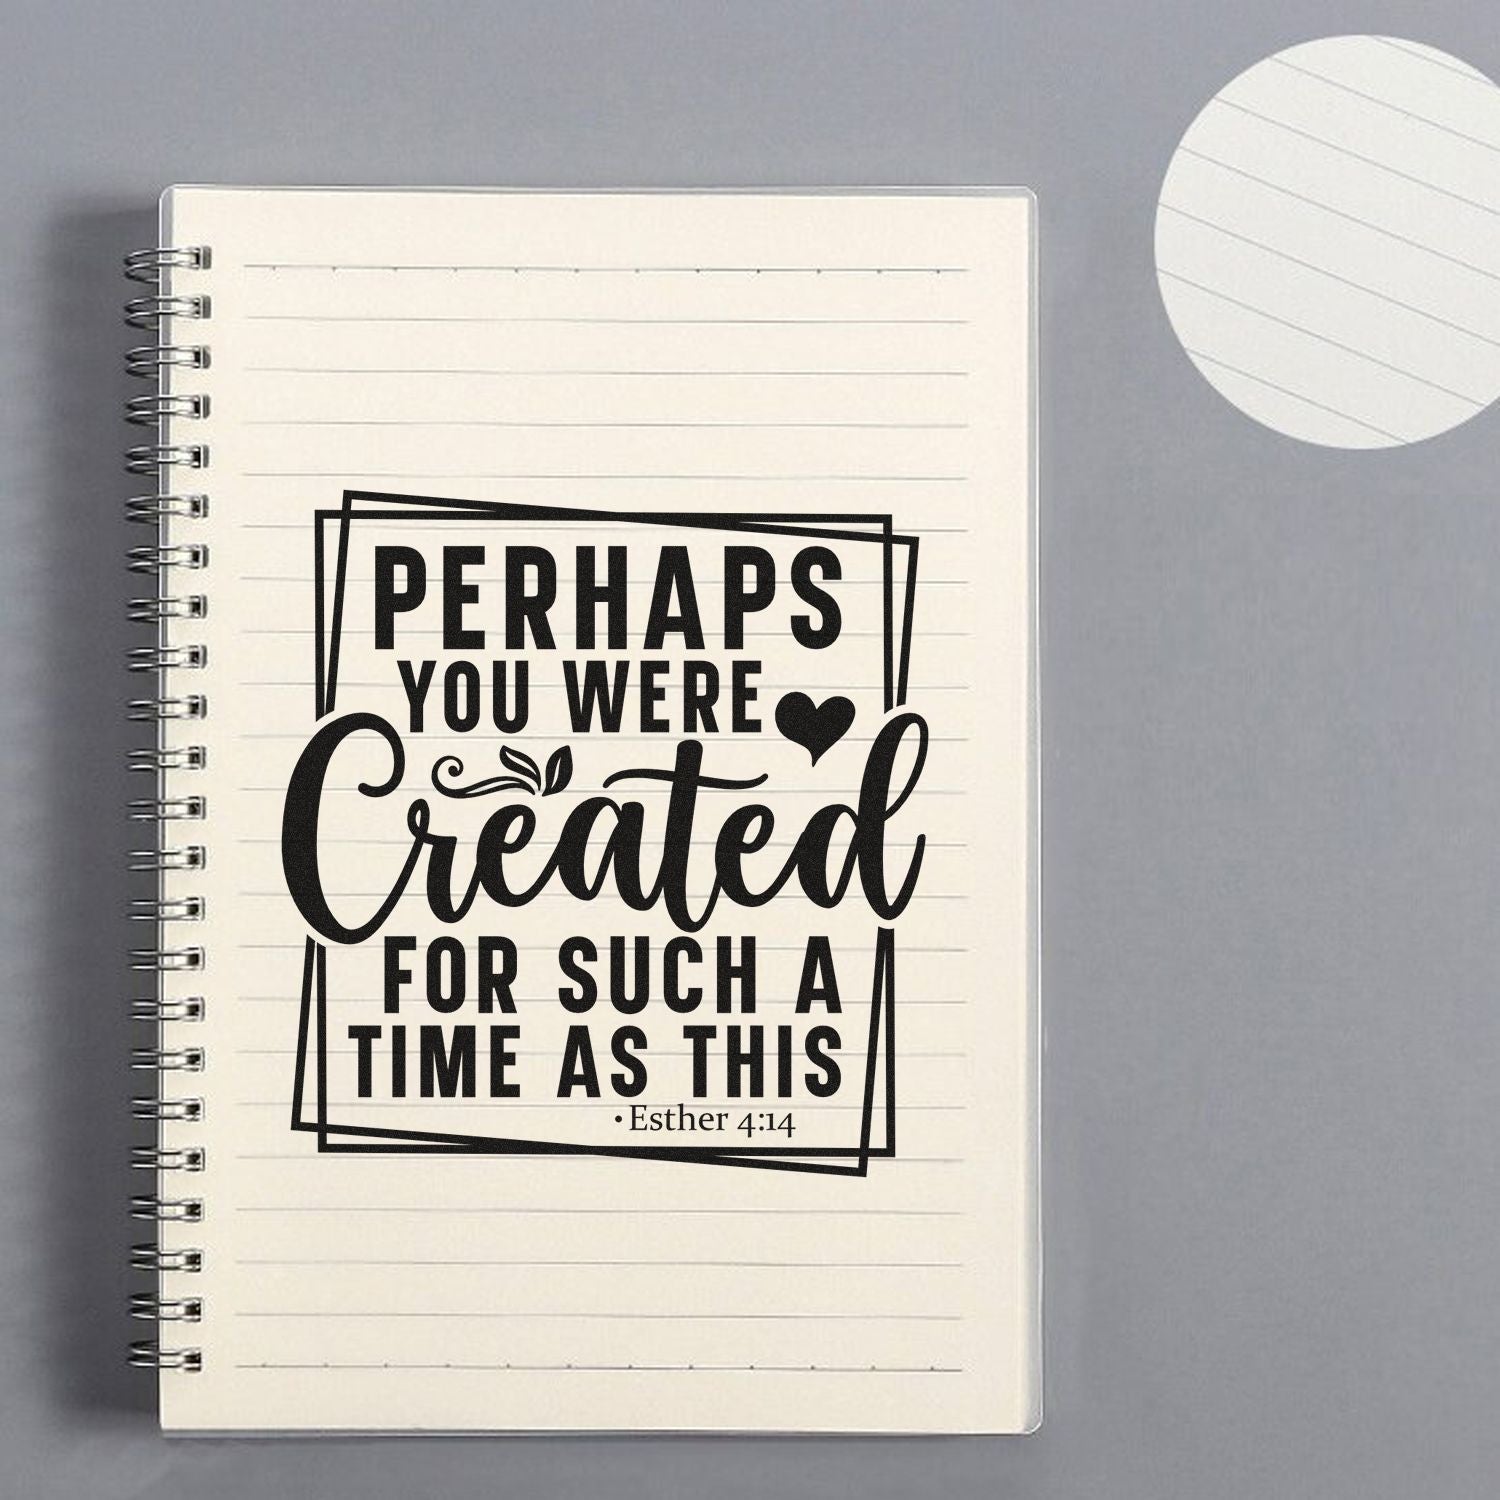 PERHAPS
YOU WERE
Created
FOR SUCH A
TIME AS THIS
•Esther 4:14